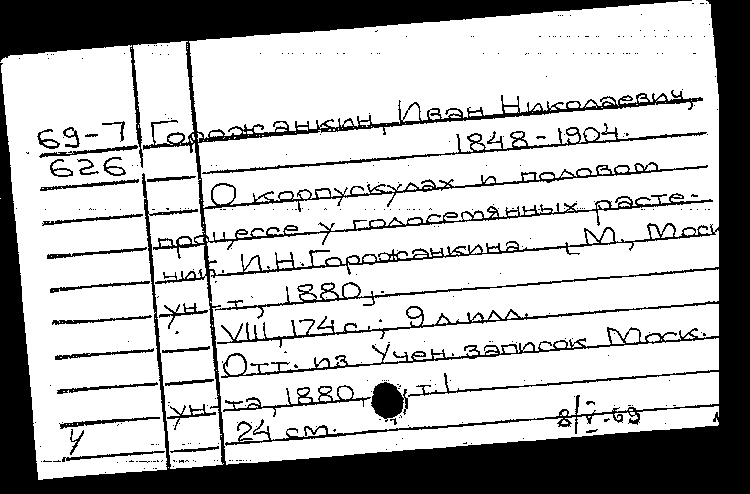 69-7 Горожанкин, Иван Николаевич,
626 1848-1904.
О корпускулах и половом
процессе у голосемянных расте-
ний. И.Н.Горожанкина. [М., Моск
ун-т, 1880].
VIII, 174 с.; 9 л. илл.
Отт. из Учен. записок Моск.
ун-та, 1880, т.1
24 см.
У 8/V-69